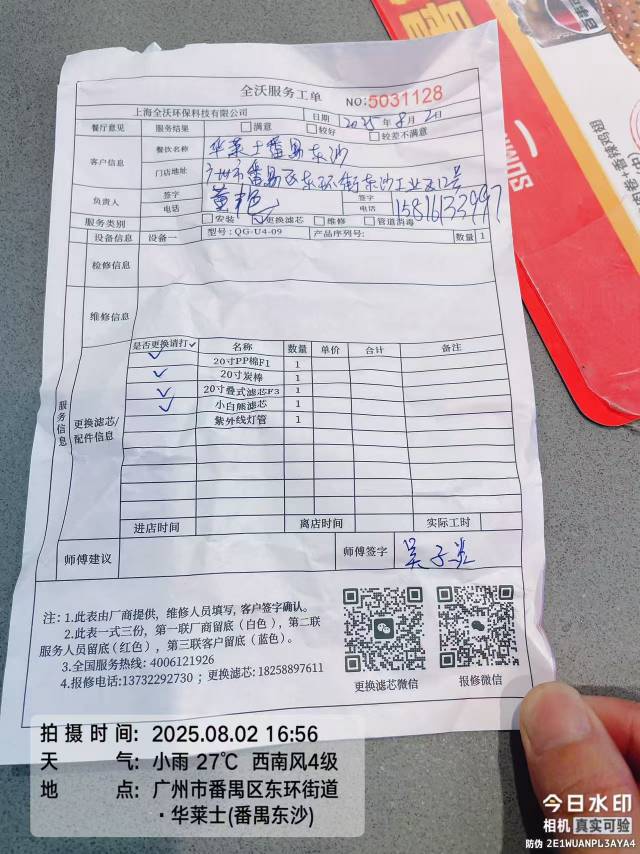 全沃服务工单
NO:5031128
上海全沃环保科技有限公司 日期 2025年8月2日
餐厅意见 服务结果 满意 较好 较差不满意
客户信息 餐饮名称 华莱士番禺东沙
门店地址 广州市番禺区东环街东沙工业区12号
负责人 签字 签字
电话 电话 15816133997
服务类别 安装 ✓更换滤芯 维修 管道消毒
设备信息 设备一 型号:QG-U4-09 产品序列号: 数量 1
检修信息
维修信息
服务信息
更换滤芯/配件信息
是否更换请打✓ 名称 数量 单价 合计 备注
✓ 20寸PP棉F1 1
✓ 20寸炭棒 1
✓ 20寸叠式滤芯F3 1
✓ 小白熊滤芯 1
紫外线灯管 1
进店时间 离店时间 实际工时
师傅建议 师傅签字
注:1.此表由厂商提供,维修人员填写,客户签字确认。
2.此表一式三份,第一联厂商留底(白色),第二联
服务人员留底(红色),第三联客户留底(蓝色)。
3.全国服务热线:4006121926
4.报修电话:13732292730;更换滤芯:18258897611
更换滤芯微信 报修微信
拍摄时间:2025.08.02 16:56
天气:小雨 27℃ 西南风4级
地点:广州市番禺区东环街道
·华莱士(番禺东沙)
今日水印
相机 真实可验
防伪 2E1WUANPL3AYA4